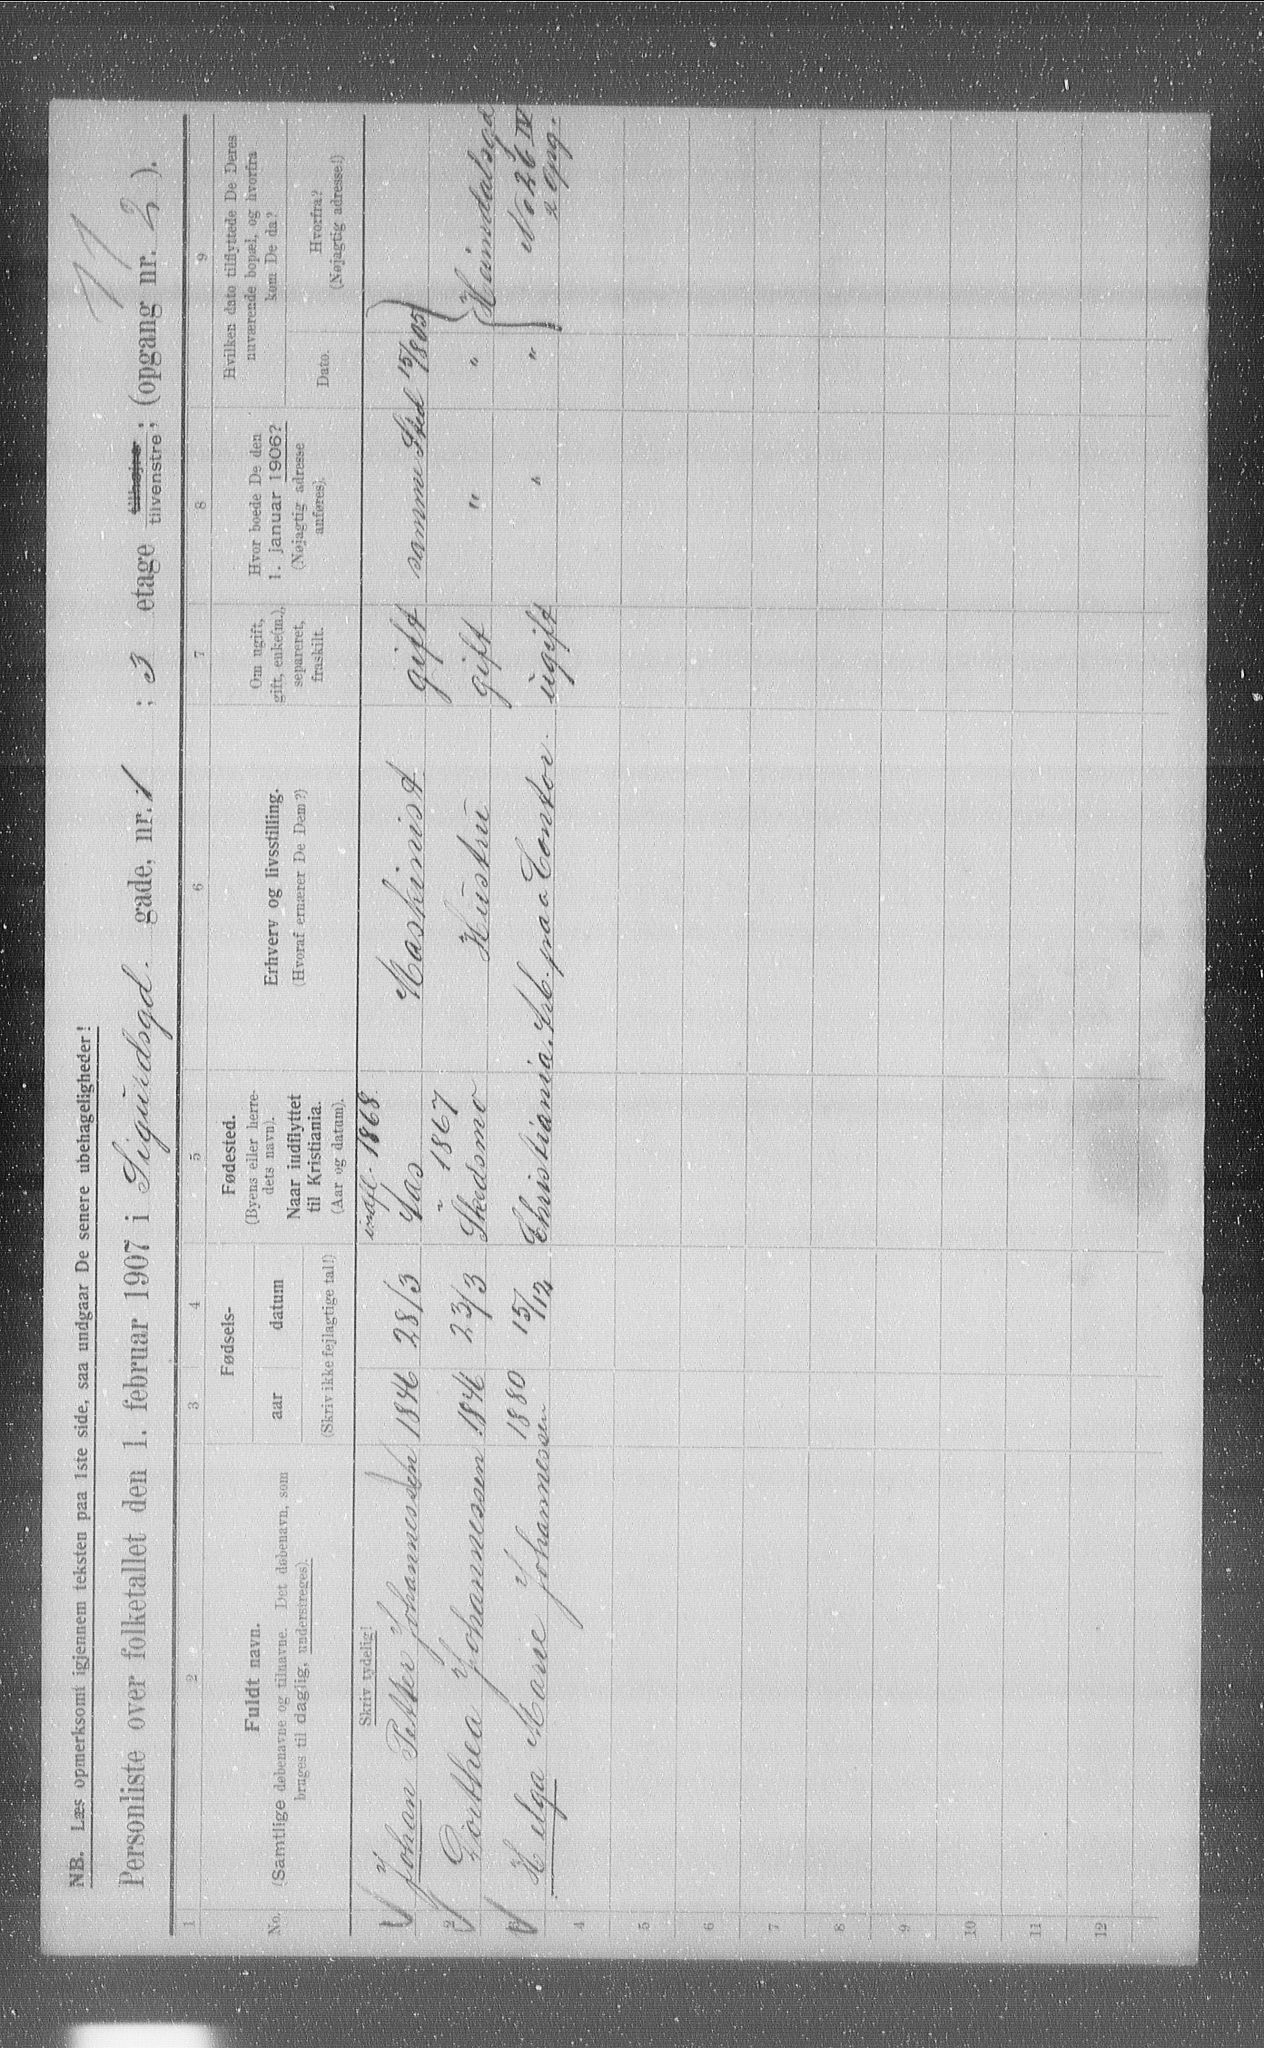 11
NB. Læs opmerksomt igjennem teksten paa 1ste side, saa undgaar De senere ubehageligheder!
Personliste over folketallet den 1. februar 1907 i Sigurdsgd. gade, nr. 1 ; 3 etage tilhøjre tilvenstre; (opgang nr. 2 ).
1 2 3 4 5 6 7 8 9
No.
Fuldt navn.
(Samtlige døbenavne og tilnavne. Det døbenavn, som
bruges til daglig, understreges).
Fødsels-
aar datum
(Skriv ikke fejlagtige tal!)
Fødested.
(Byens eller herre-
dets navn).
Naar indflyttet
til Kristiania.
(Aar og datum).
Erhverv og livsstilling.
(Hvoraf ernærer De Dem?)
Om ugift,
gift, enke(m.),
separeret,
fraskilt.
Hvor boede De den
1. januar 1906?
(Nøjagtig adresse
anføres).
Hvilken dato tilflyttede De Deres
nuværende bopæl, og hvorfra
kom De da?
Dato.
Hvorfra?
(Nøjagtig adresse!)
Skriv tydelig!
indfl. 1868
Johan Petter Johannessen 1846 28/3 Aas Maskinist gift samme Sted 15/8 05
" 1867
2 Dorthea Johannessen 1846 23/3 Skedsmo Hustru gift " " Heimdalsgd
3 Helga Marie Johannessen 1880 15/12 Christiania. Arb. paa Contor. ugift " " No 26 IV
2 Opg.
4
5
6
7
8
9
10
11
12